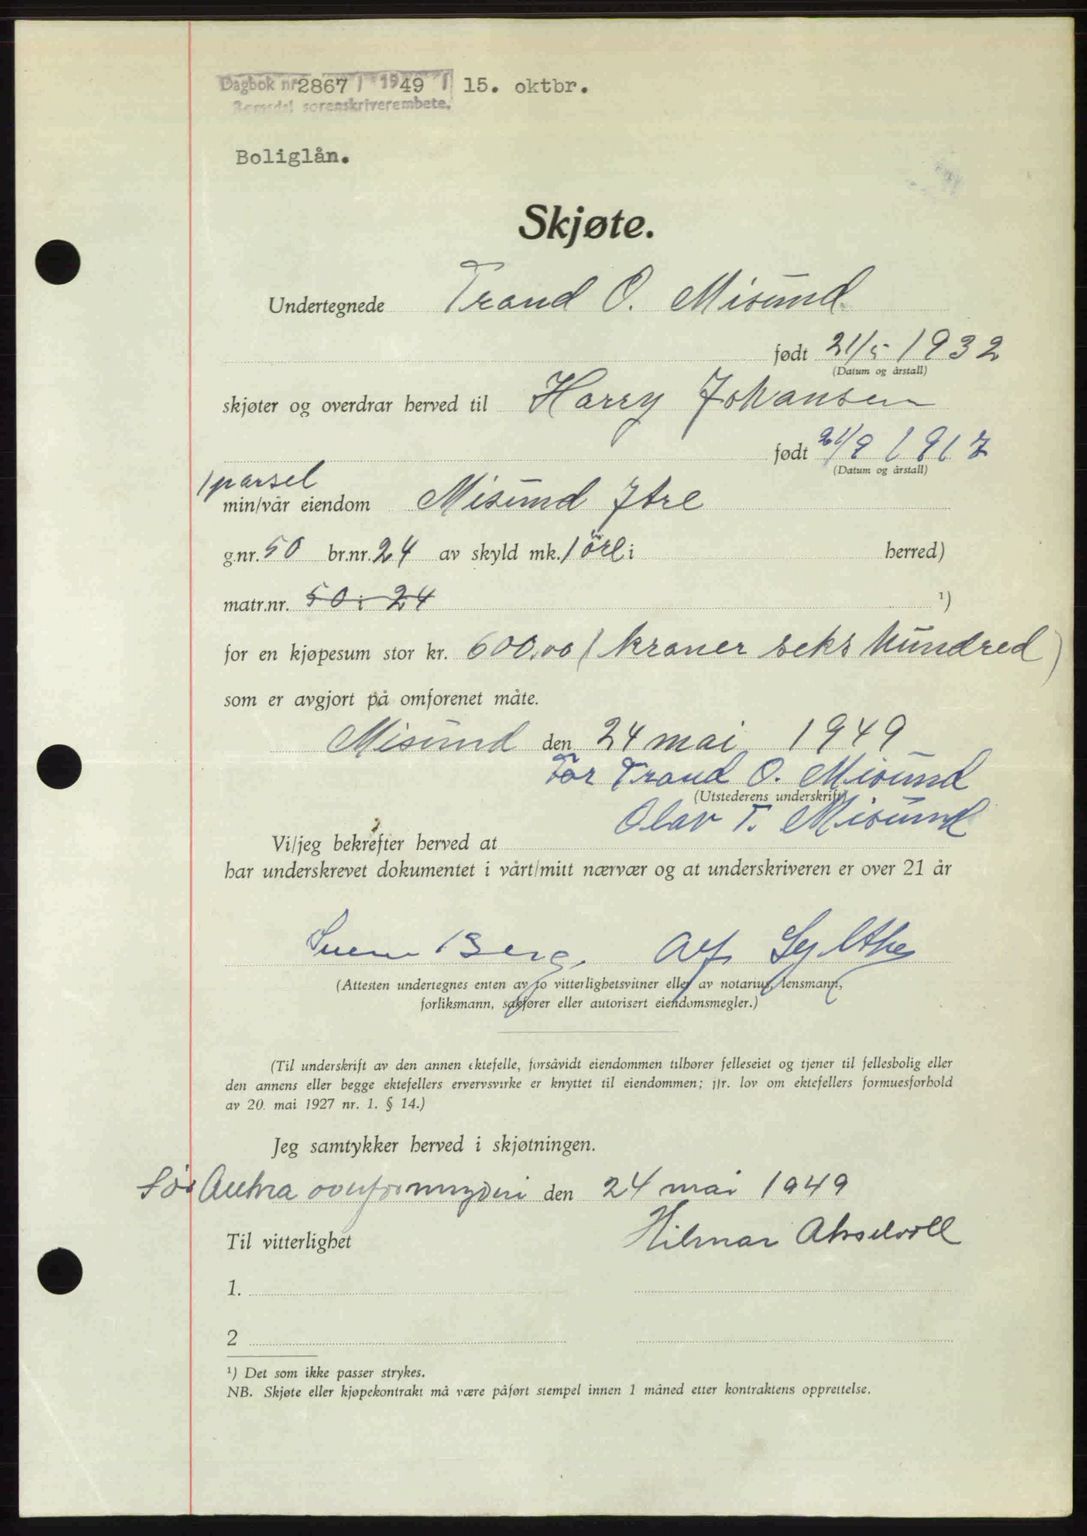 Dagbok nr 2867 / 1949 15. oktbr.
Romsdal sorenskriverembete.
Boliglån.
Skjøte.
Undertegnede Trond O. Misund
født 21/5 1932
(Datum og årstall)
skjøter og overdrar herved til Harry Johansen
født 21/9 1917
(Datum og årstall)
1 parsel
min/vår eiendom Misund Ytre
g.nr. 50 br.nr. 24 av skyld mk. 1 öre i herred)
matr.nr. 50 i 24 ¹)
for en kjøpesum stor kr. 600,00 (kroner seks hundred)
som er avgjort på omforenet måte.
Misund den 24 mai 1949
For Trond O. Misund
(Utstederens underskrift)
Olav T. Misund
Vi/jeg bekrefter herved at
har underskrevet dokumentet i vårt/mitt nærvær og at underskriveren er over 21 år
Berg. Alf Sylthe
(Attesten undertegnes enten av to vitterlighetsvitner eller av notarius, lensmann,
forliksmann, sakfører eller autorisert eiendomsmegler.)
(Til underskrift av den annen ektefelle, forsåvidt eiendommen tilhører felleseiet og tjener til fellesbolig eller
den annens eller begge ektefellers ervervsvirke er knyttet til eiendommen; jfr. lov om ektefellers formuesforhold
av 20. mai 1927 nr. 1. § 14.)
Jeg samtykker herved i skjøtningen.
Sör Aukra overformynderi den 24 mai 1949
Til vitterlighet Hilmar Akselvoll
1.
2
¹) Det som ikke passer strykes.
NB. Skjøte eller kjøpekontrakt må være påført stempel innen 1 måned etter kontraktens opprettelse.